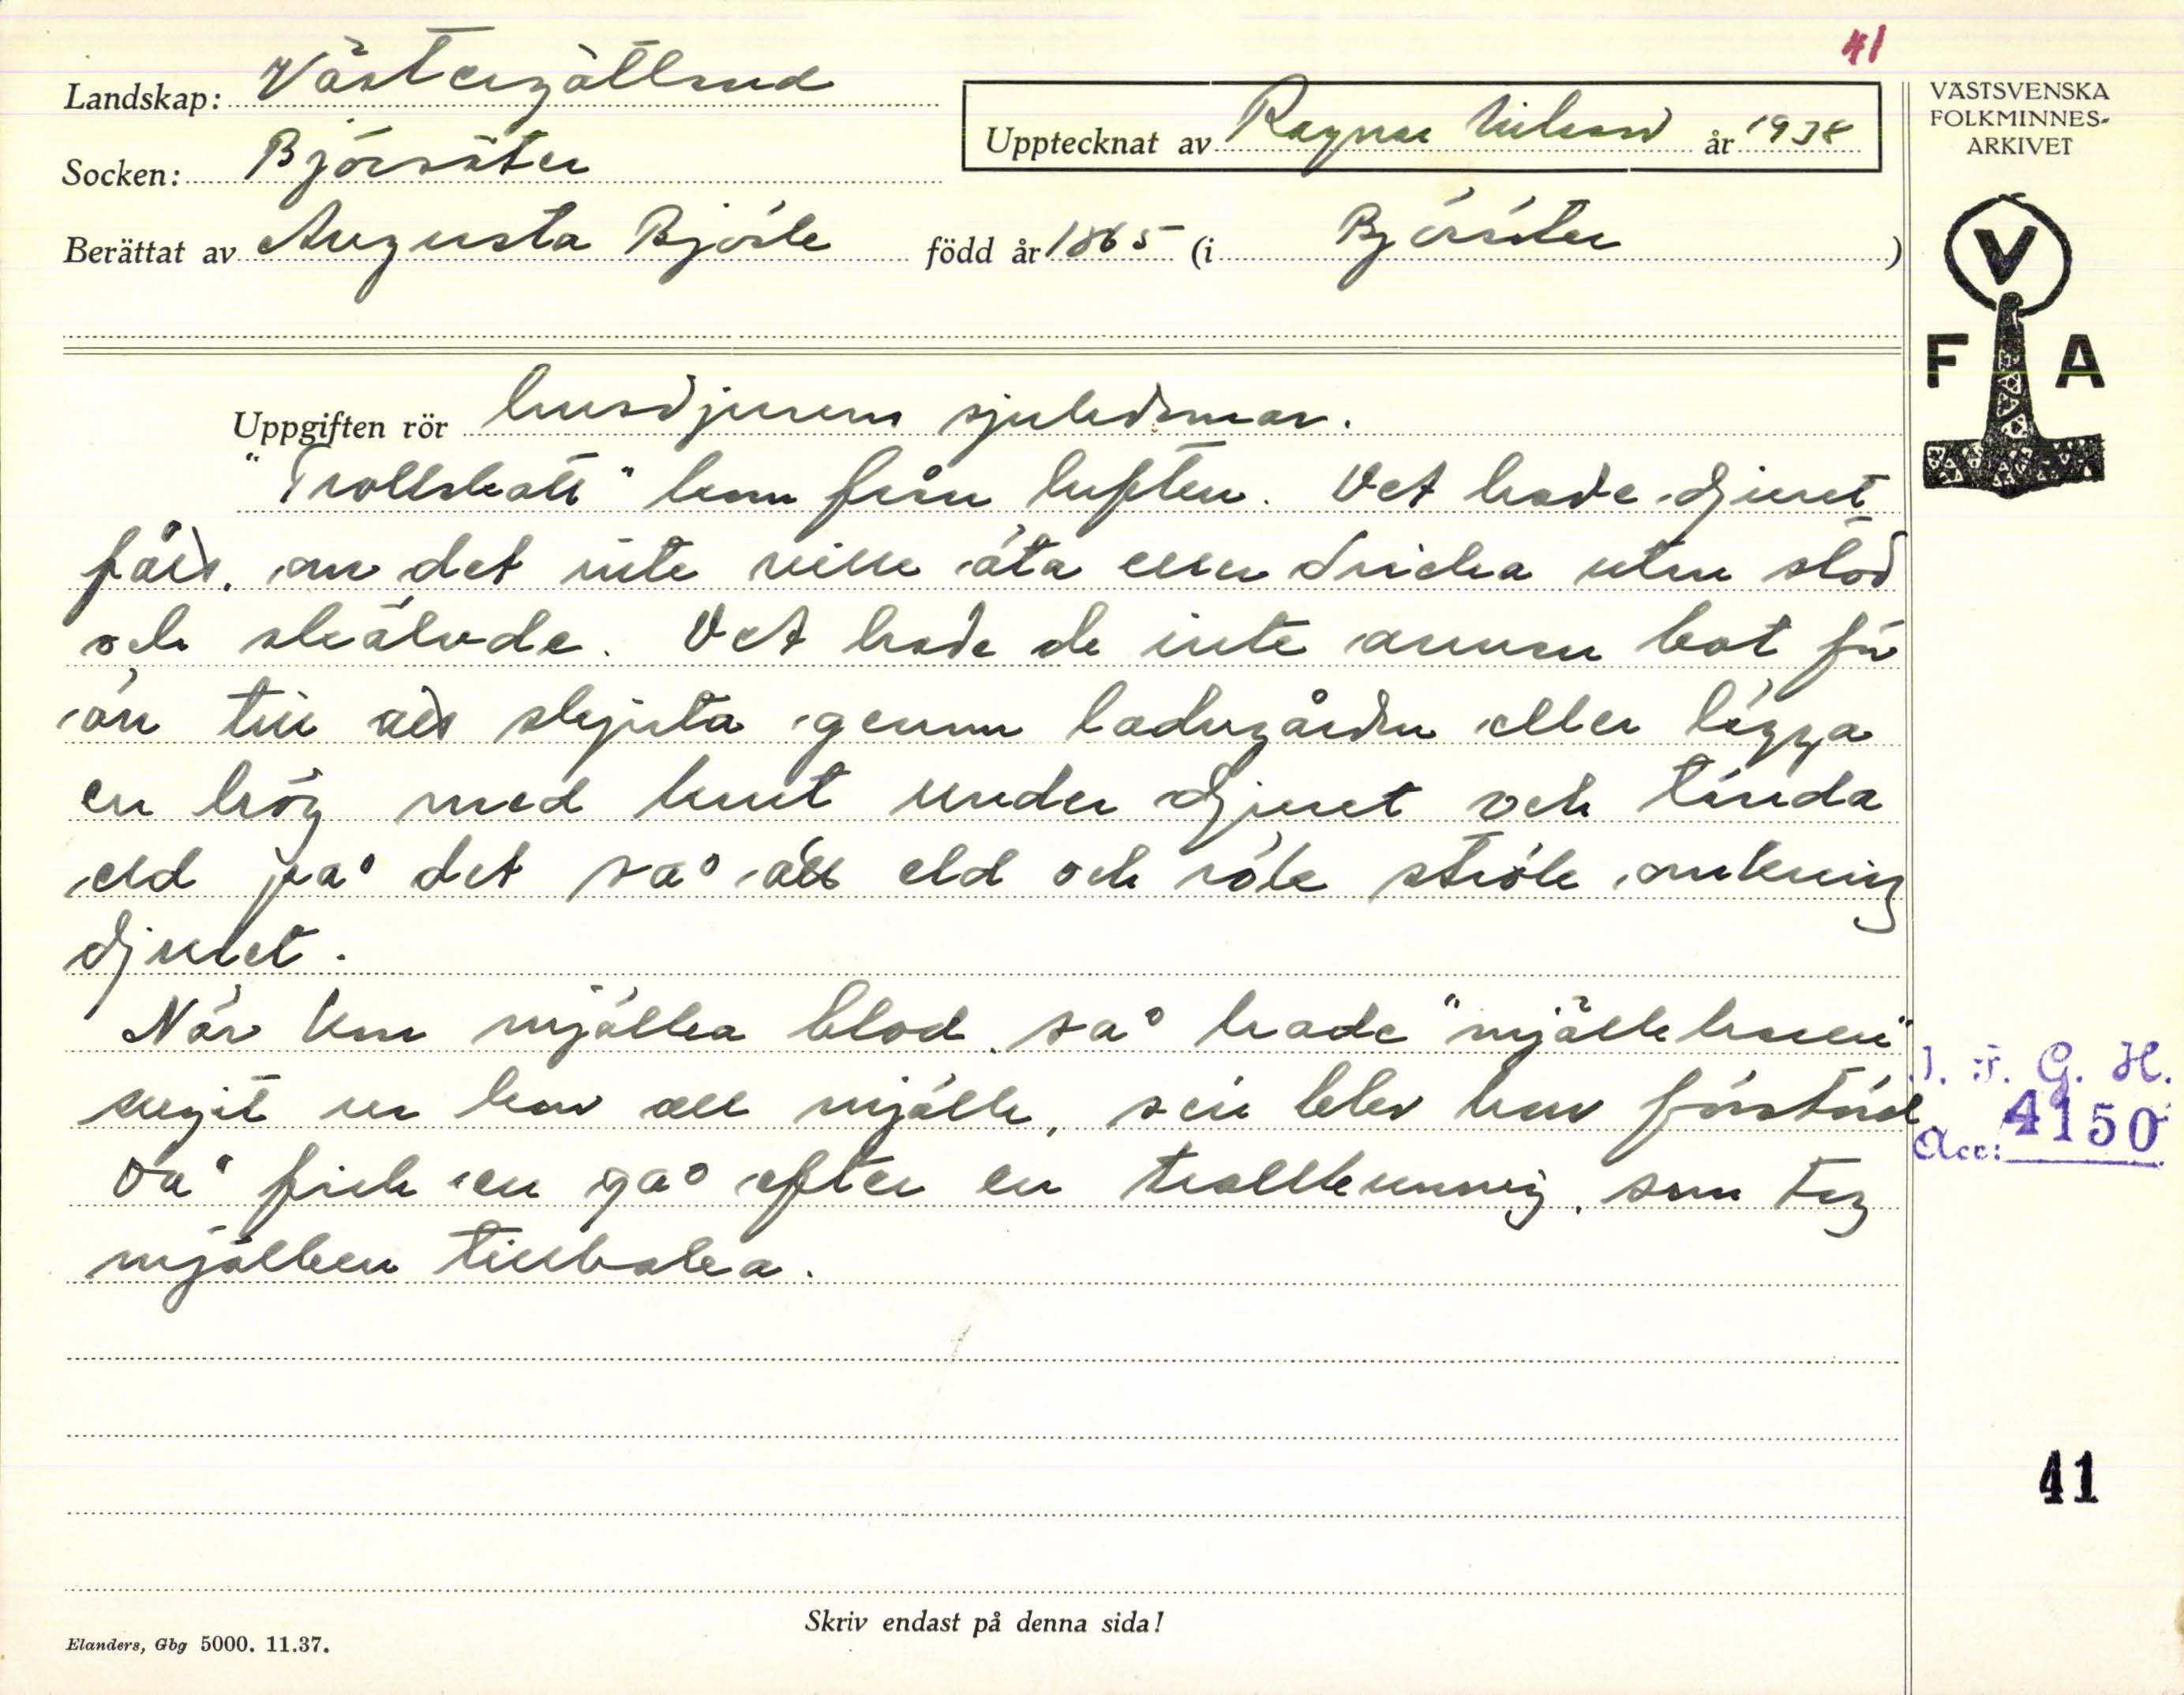 41
Landskap: Västergötland
Socken: Björsäter
Upptecknat av Ragnar Nilsson år 1938
Berättat av Augusta Björk född år 1865 (i Björsäter)
VÄSTSVENSKA
FOLKMINNES-
ARKIVET
V
F A
Uppgiften rör husdjurens sjukdomar.
"Trollskott" kom från luften. Det hade djuret
fått, om det inte ville äta eller dricka utan stod
och skälvde. Det hade de inte annan bot för
än till att skjuta genom ladugården eller lägga
en hög med krut under djuret och tända
eld på det så att eld och rök strök omkring
djuret.
När kon mjölka blod, så hade "mjölkharen"
sugit ur henne all mjölk, sen blev hon förstörd
Då fick en gå efter en trollkunnig, som tog
mjölken tillbaka.
I. F. G. H.
Acc: 4150
41
Skriv endast på denna sida!
Elanders, Gbg 5000. 11.37.